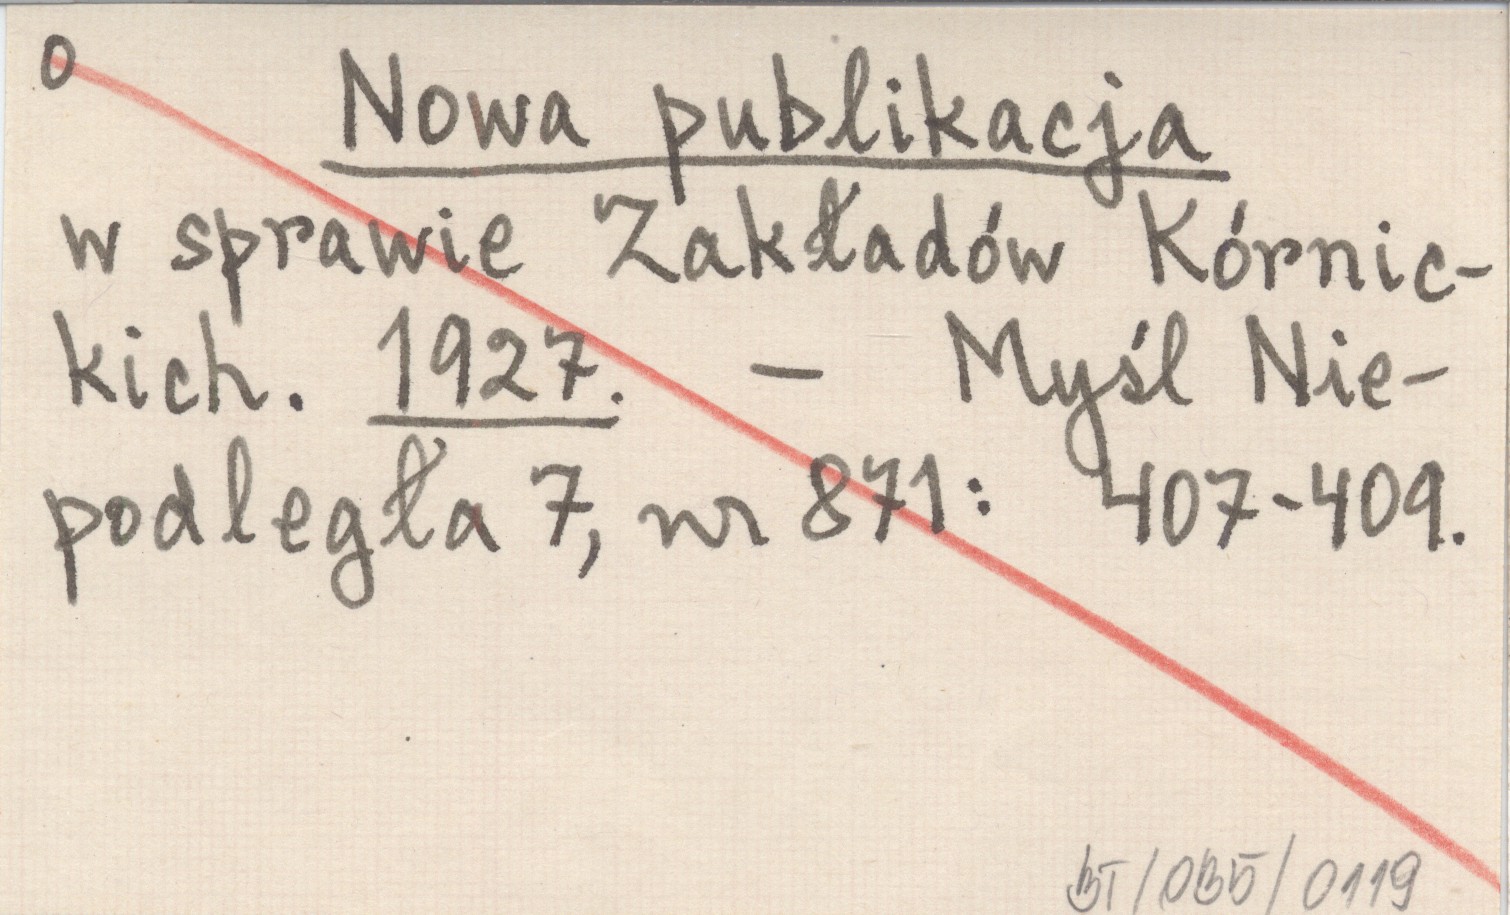 0
Nowa publikacja
w sprawie Zakładów Kórnic-
kich. 1927. — Myśl Nie-
podległa 7, nr 871: 407-409.
BT/OB5/0119